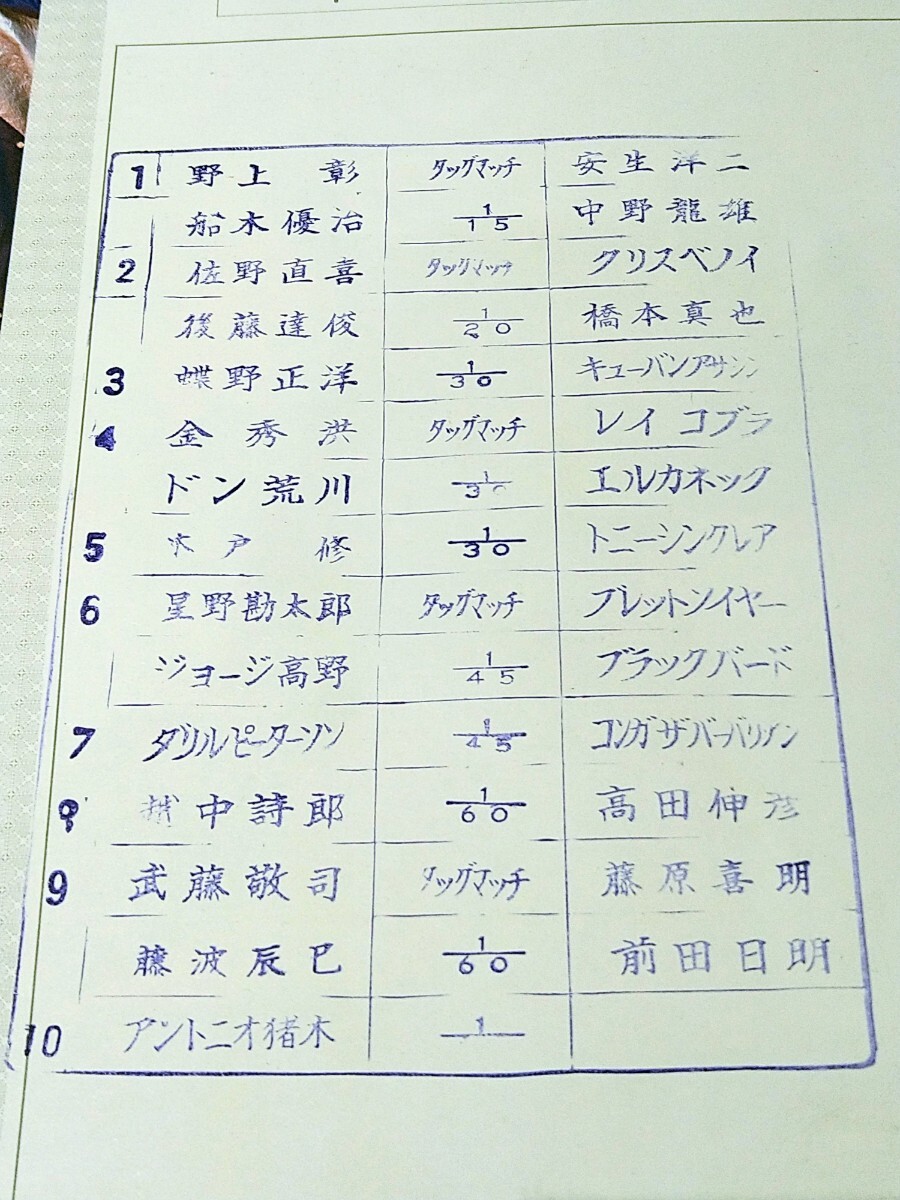 1 野上 彰 タッグマッチ 安生洋二
船木優治 1/15 中野龍雄
2 佐野直喜 タッグマッチ クリスベノイ
後藤達俊 1/20 橋本真也
3 蝶野正洋 1/30 キューバンアサシン
4 金秀洪 タッグマッチ レイコブラ
ドン荒川 1/30 エルカネック
5 木戸 修 1/30 トニーシンクレア
6 星野勘太郎 タッグマッチ ブレットソイヤー
ジョージ高野 1/45 ブラックバード
7 ダリルピーターソン 1/45 コンガザバーバリアン
8 越中詩郎 1/60 高田伸彦
9 武藤敬司 タッグマッチ 藤原喜明
藤波辰巳 1/60 前田日明
10 アントニオ猪木 1